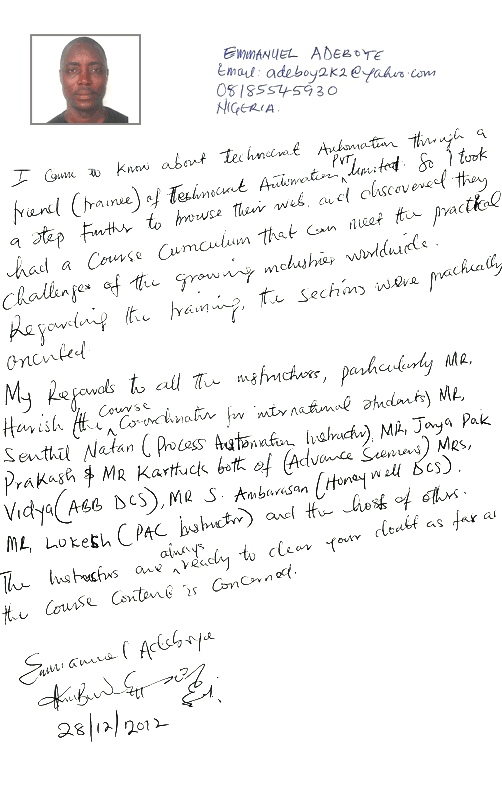 EMMANUEL ADEBOYE
Email: adeboy2k2@yahoo.com
08185545930
NIGERIA.
I came to know about technocrat Automation through a
friend (trainee) of Technocrat Automation PVT limited. So I took
a step further to browse their web and discovered they
had a Course Curriculum that can meet the practical
challenges of the growing industries worldwide.
Regarding the training, the sections were practically
oriented
My Regards to all the instructors, particularly MR.
Harish (the Course Co-ordinator for international students) MR,
Senthil Natan (Process Automation Instructor), MR, Jaya Pak
Prakash & MR Karthick both of (Advance Siemens) MRS,
Vidya (ABB DCS), MR S. Ambarasan (Honey Well DCS).
MR, LOKESH (PAC Instructor) and the host of others.
The Instructors are always ready to clear your doubt as far as
the course content is concerned.
Emmanuel Adeboye
28/12/2012